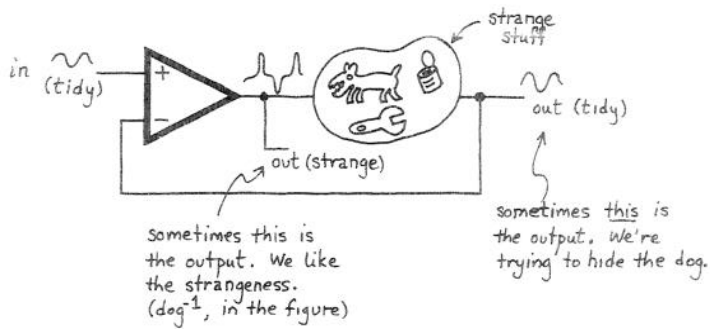 strange
stuff
in
(tidy)
+
−
out (strange)
out (tidy)
sometimes this is
the output. We like
the strangeness.
(dog⁻¹, in the figure)
sometimes this is
the output. We're
trying to hide the dog.